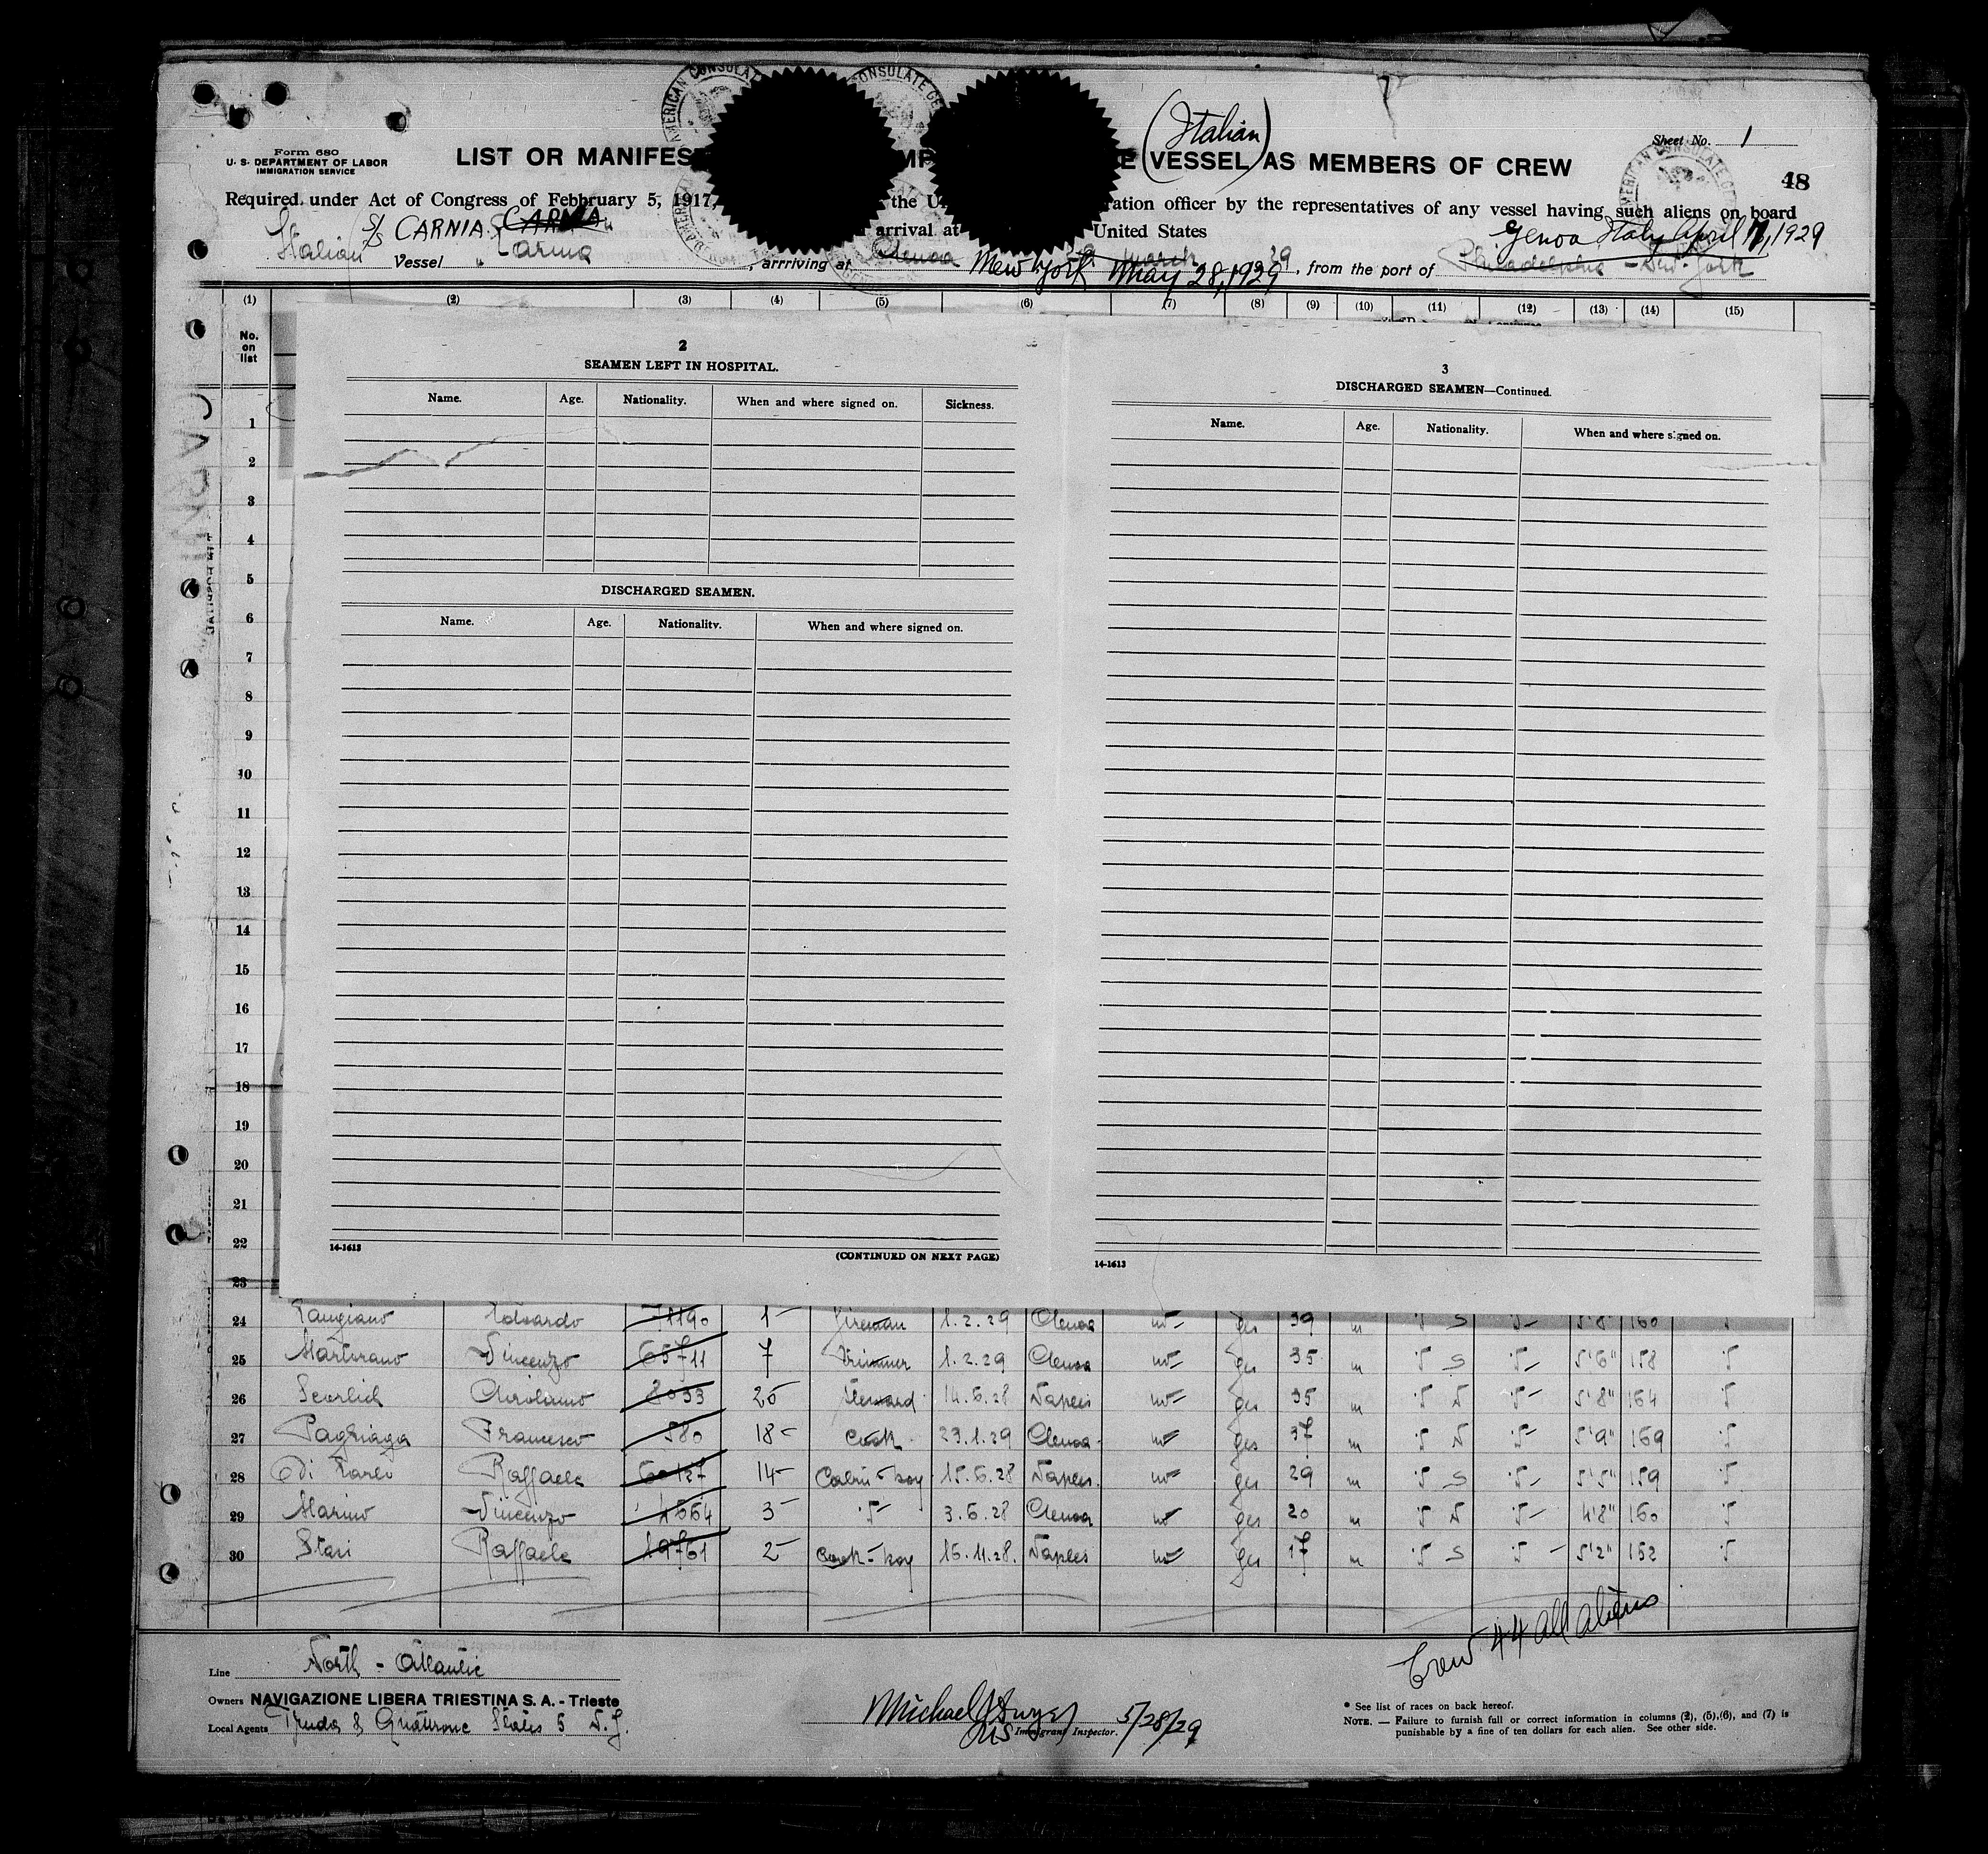 (Italian)
Form 680
U. S. DEPARTMENT OF LABOR
IMMIGRATION SERVICE
LIST OR MANIFES
E VESSEL AS MEMBERS OF CREW
Sheet No. 1
48
Required under Act of Congress of Febbruary 5, 1917,
the U
ration officer by the representatives of any vessel having such aliens on board
arrival at
United States
S/S CARNIA CARNIA
Genoa Italy April 17, 1929
Italian Vessel " Carnia, arrriving at Genoa New York May 28, 1929, from the port of Philadelphia - New-York
(1) (2) (3) (4) (5) (6) (7) (8) (9) (10) (11) (12) (13) (14) (15)
No.
on
list
2
SEAMEN LEFT IN HOSPITAL.
Name. Age. Nationality. When and where signed on. Sickness.
DISCHARGED SEAMEN.
Name. Age. Nationality. When and where signed on.
14-1613
(CONTINUED ON NEXT PAGE)
3
DISCHARGED SEAMEN—Continued.
Name. Age. Nationality. When and where signed on.
14-1613
1
2
3
4
5
6
7
8
9
10
11
12
13
14
15
16
17
18
19
20
21
22
23
24 Edoardo 1 Fireman 1.2.29 Genoa no yes 39 m S 5'8" 160
25 Martorano Vincenzo 65711 7 Trimmer 1.2.29 Genoa no yes 35 m S 5'6" 158
26 Girolamo 2033 25 Steward 14.6.28 Naples no yes 35 m N 5'8" 164
27 Francesco 580 18 Cook 23.1.29 Genoa no yes 37 m N 5'9" 169
28 Di Carlo Raffaele 60127 14 Cabin-boy 15.6.28 Naples no yes 29 m S 5'5" 159
29 Marino Vincenzo 4664 3 3.6.28 Genoa no yes 20 m N 4'8" 160
30 Stasi Raffaele 19761 2 Cook-boy 16.11.28. Naples no yes 17 m S 5'2" 152
Crew 44 all aliens
Line North - Atlantic
Owners NAVIGAZIONE LIBERA TRIESTINA S. A. - Trieste
Local Agents
Michael
Immigrant Inspector. 5/28/29
* See list of races on back hereof.
NOTE. — Failure to furnish full or correct information in columns (2), (5),(6), and (7) is
punishable by a fine of ten dollars for each alien. See other side.